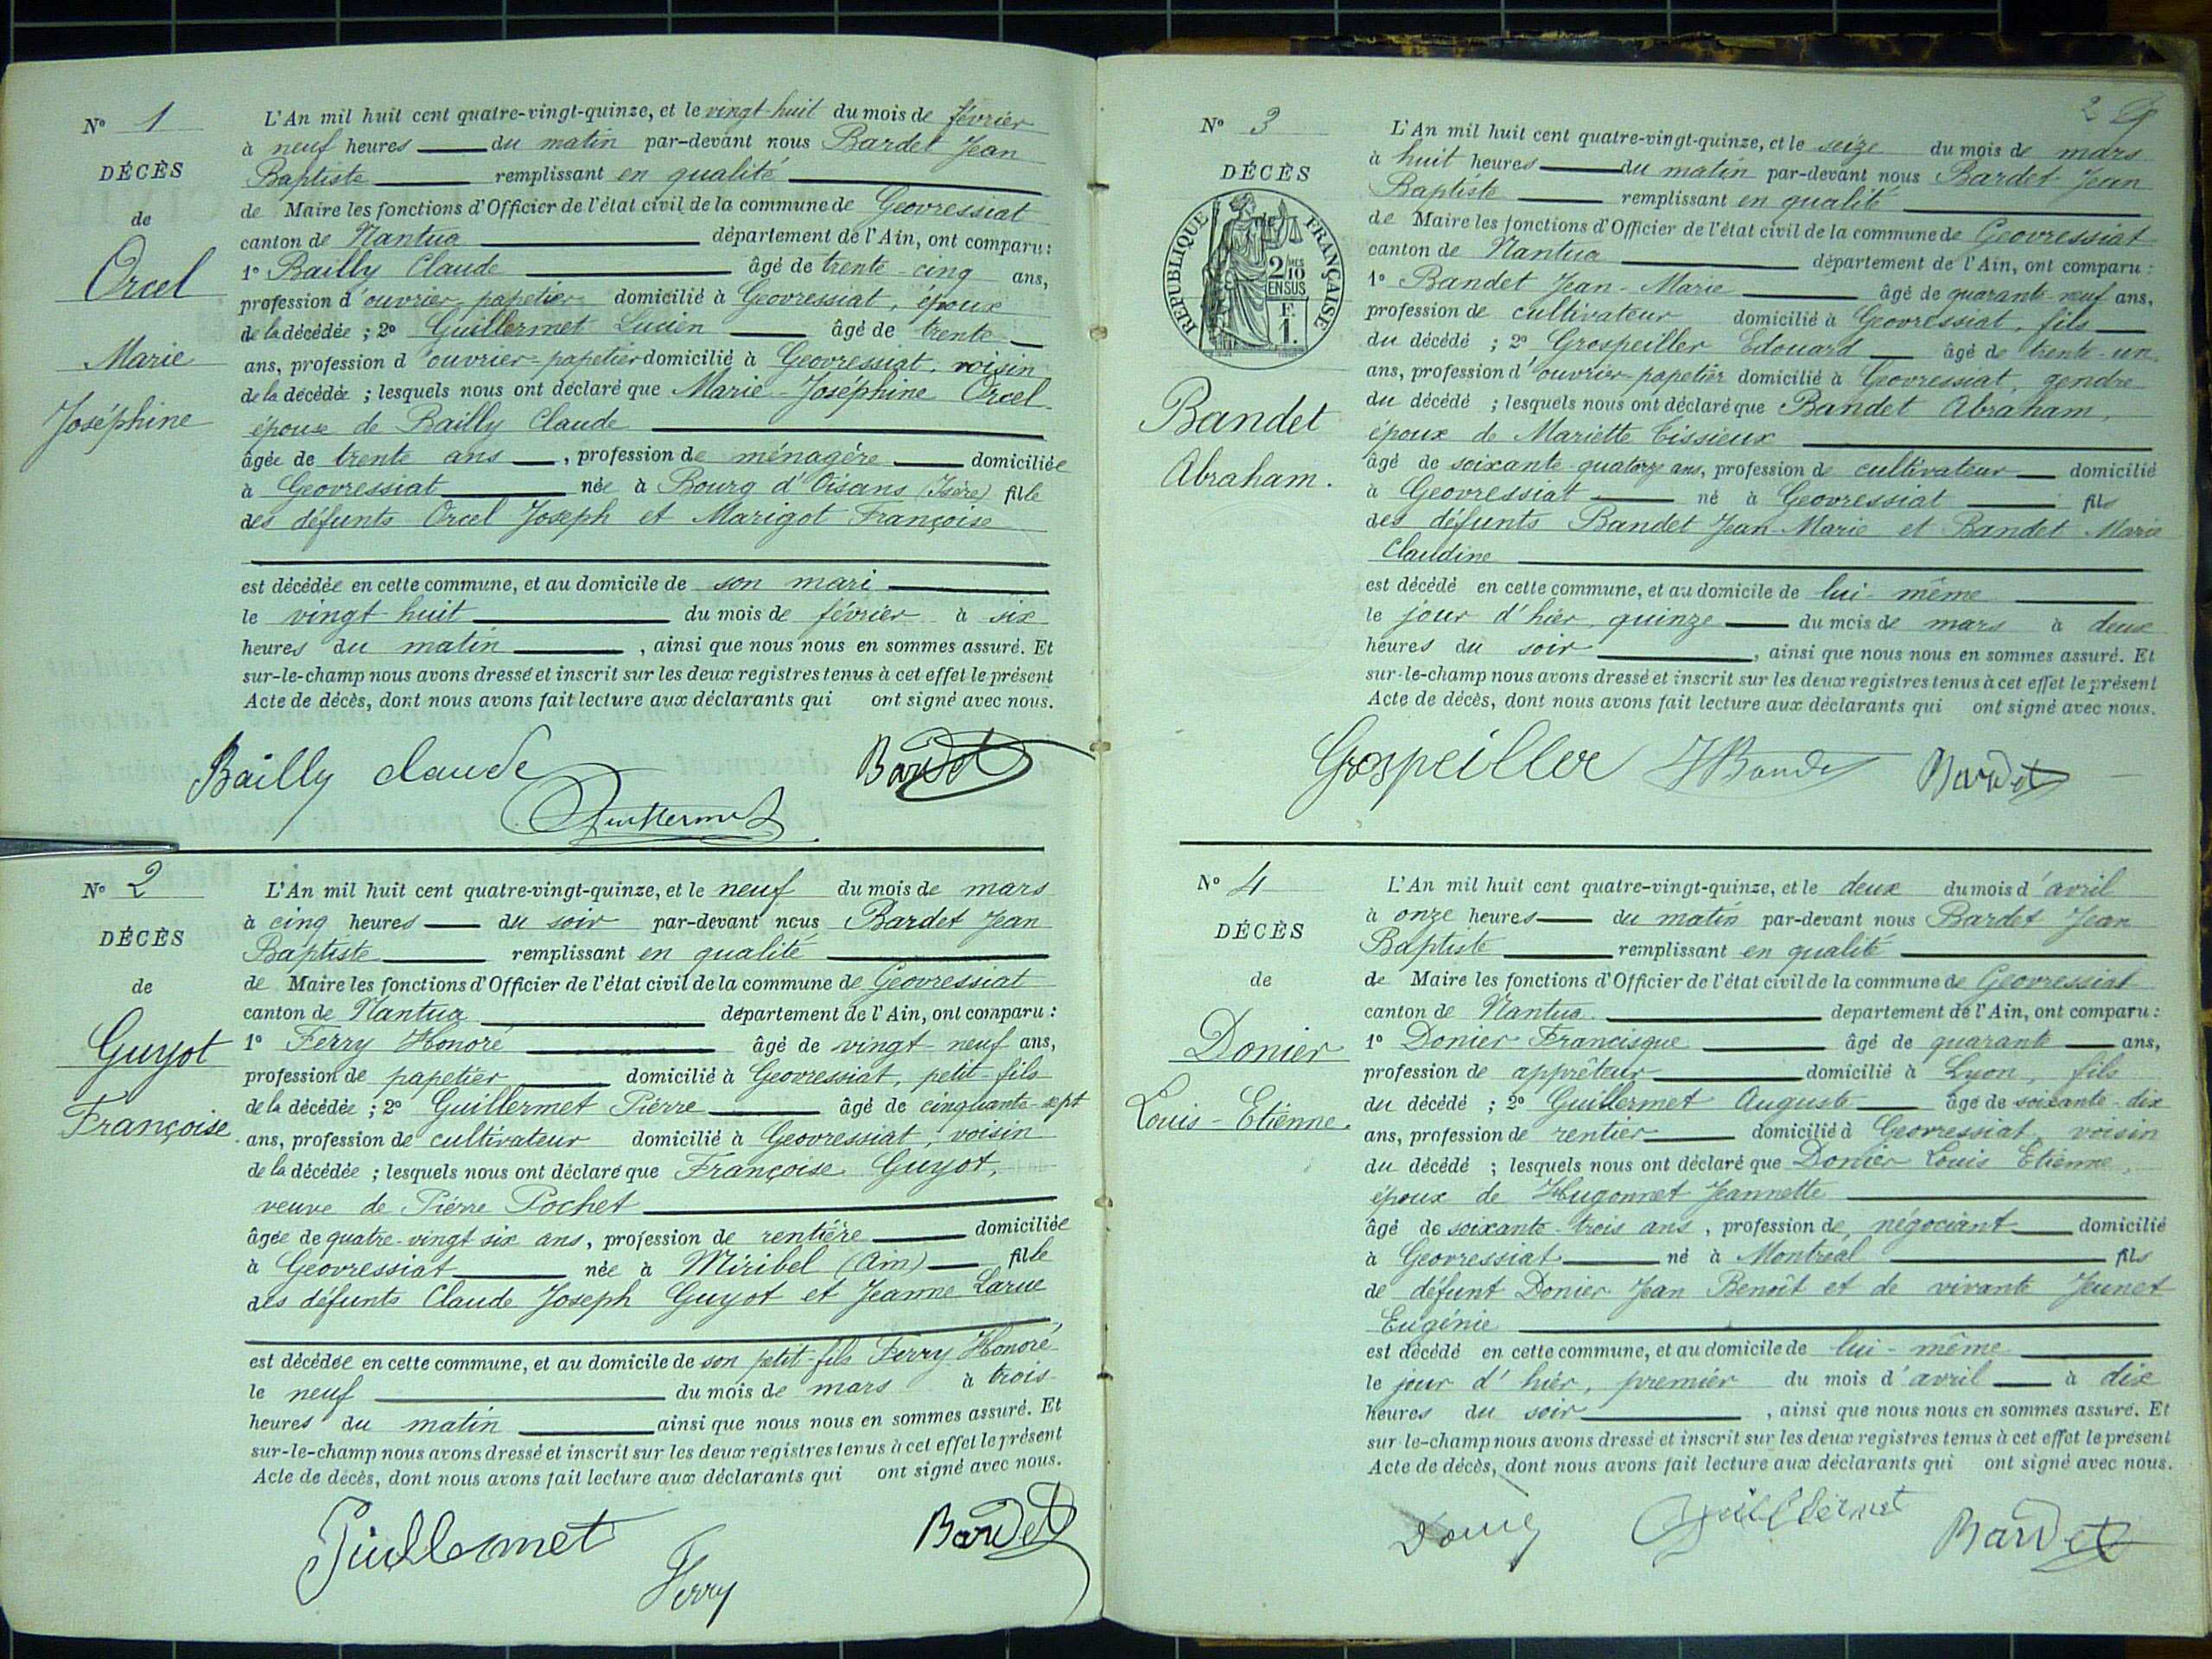 N° 1
DÉCÈS
de
Orcel
Marie
Joséphine
L'An mil huit cent quatre-vingt-quinze, et le vingt-huit du mois de février
à neuf heures du matin par-devant nous Bardet Jean
Baptiste remplissant en qualité
de Maire les fonctions d'Officier de l'état civil de la commune de Geovressiat
canton de Nantua département de l'Ain, ont comparu :
1° Bailly Claude âgé de trente-cinq ans,
profession d'ouvrier-papetier domicilié à Geovressiat, époux
de la décédée ; 2° Guillermet Lucien âgé de trente
ans, profession d'ouvrier-papetier domicilié à Geovressiat, voisin
de la décédée ; lesquels nous ont déclaré que Marie-Joséphine Orcel
épouse de Bailly Claude
âgée de trente ans, profession de ménagère domiciliée
à Geovressiat née à Bourg d'Oisans (Isère) fille
des défunts Orcel Joseph et Marigot Françoise
est décédée en cette commune, et au domicile de son mari
le vingt-huit du mois de février à six
heures du matin, ainsi que nous nous en sommes assuré. Et
sur-le-champ nous avons dressé et inscrit sur les deux registres tenus à cet effet le présent
Acte de décès, dont nous avons fait lecture aux déclarants qui ont signé avec nous.
Bailly claude Bardet
Guillermet
N° 2
DÉCÈS
de
Guyot
Françoise.
L'An mil huit cent quatre-vingt-quinze, et le neuf du mois de mars
à cinq heures du soir par-devant nous Bardet Jean
Baptiste remplissant en qualité
de Maire les fonctions d'Officier de l'état civil de la commune de Geovressiat
canton de Nantua département de l'Ain, ont comparu :
1° Ferry Honoré âgé de vingt-neuf ans,
profession de papetier domicilié à Geovressiat, petit-fils
de la décédée ; 2° Guillermet Pierre âgé de cinquante-sept
ans, profession de cultivateur domicilié à Geovressiat, voisin
de la décédée ; lesquels nous ont déclaré que Françoise Guyot,
veuve de Pierre Pochet
âgée de quatre-vingt six ans, profession de rentière domiciliée
à Geovressiat née à Miribel (Ain) fille
des défunts Claude Joseph Guyot et Jeanne Larue
est décédée en cette commune, et au domicile de son petit-fils Ferry Honoré
le neuf du mois de mars à trois
heures du matin ainsi que nous nous en sommes assuré. Et
sur-le-champ nous avons dressé et inscrit sur les deux registres tenus à cet effet le présent
Acte de décès, dont nous avons fait lecture aux déclarants qui ont signé avec nous.
Guillermet Bardet
Ferry
2
N° 3
DÉCÈS
RÉPUBLIQUE FRANÇAISE
2/10
EN SUS
F.
1.
Bandet
Abraham.
L'An mil huit cent quatre-vingt-quinze, et le seize du mois de mars
à huit heures du matin par-devant nous Bardet Jean
Baptiste remplissant en qualité
de Maire les fonctions d'Officier de l'état civil de la commune de Geovressiat
canton de Nantua département de l'Ain, ont comparu :
1° Bandet Jean-Marie âgé de quarante-neuf ans,
profession de cultivateur domicilié à Geovressiat, fils
du décédé ; 2° Grospeiller Edouard âgé de trente-un
ans, profession d'ouvrier-papetier domicilié à Geovressiat, gendre
du décédé ; lesquels nous ont déclaré que Bandet Abraham,
époux de Mariette Cissieux
âgé de soixante-quatorze ans, profession de cultivateur domicilié
à Geovressiat né à Geovressiat fils
des défunts Bandet Jean-Marie et Bandet Marie
Claudine
est décédé en cette commune, et au domicile de lui-même
le jour d'hier, quinze du mois de mars à deux
heures du soir, ainsi que nous nous en sommes assuré. Et
sur-le-champ nous avons dressé et inscrit sur les deux registres tenus à cet effet le présent
Acte de décès, dont nous avons fait lecture aux déclarants qui ont signé avec nous.
Grospeiller Bandet Bardet
N° 4
DÉCÈS
de
Donier
Louis-Etienne.
L'An mil huit cent quatre-vingt-quinze, et le deux du mois d'avril
à onze heures du matin par-devant nous Bardet Jean
Baptiste remplissant en qualité
de Maire les fonctions d'Officier de l'état civil de la commune de Geovressiat
canton de Nantua département de l'Ain, ont comparu :
1° Donier Francisque âgé de quarante ans,
profession de apprêteur domicilié à Lyon, fils
du décédé ; 2° Guillermet Auguste âgé de soixante-dix
ans, profession de rentier domicilié à Geovressiat, voisin
du décédé ; lesquels nous ont déclaré que Donier Louis Etienne,
époux de Hugonnet Jeannette
âgé de soixante-trois ans, profession de négociant domicilié
à Geovressiat né à Montréal fils
de défunt Donier Jean Benoît et de vivante Jeunet
Eugénie
est décédé en cette commune, et au domicile de lui-même
le jour d'hier, premier du mois d'avril à dix
heures du soir, ainsi que nous nous en sommes assuré. Et
sur-le-champ nous avons dressé et inscrit sur les deux registres tenus à cet effet le présent
Acte de décès, dont nous avons fait lecture aux déclarants qui ont signé avec nous.
Guillermet Bardet